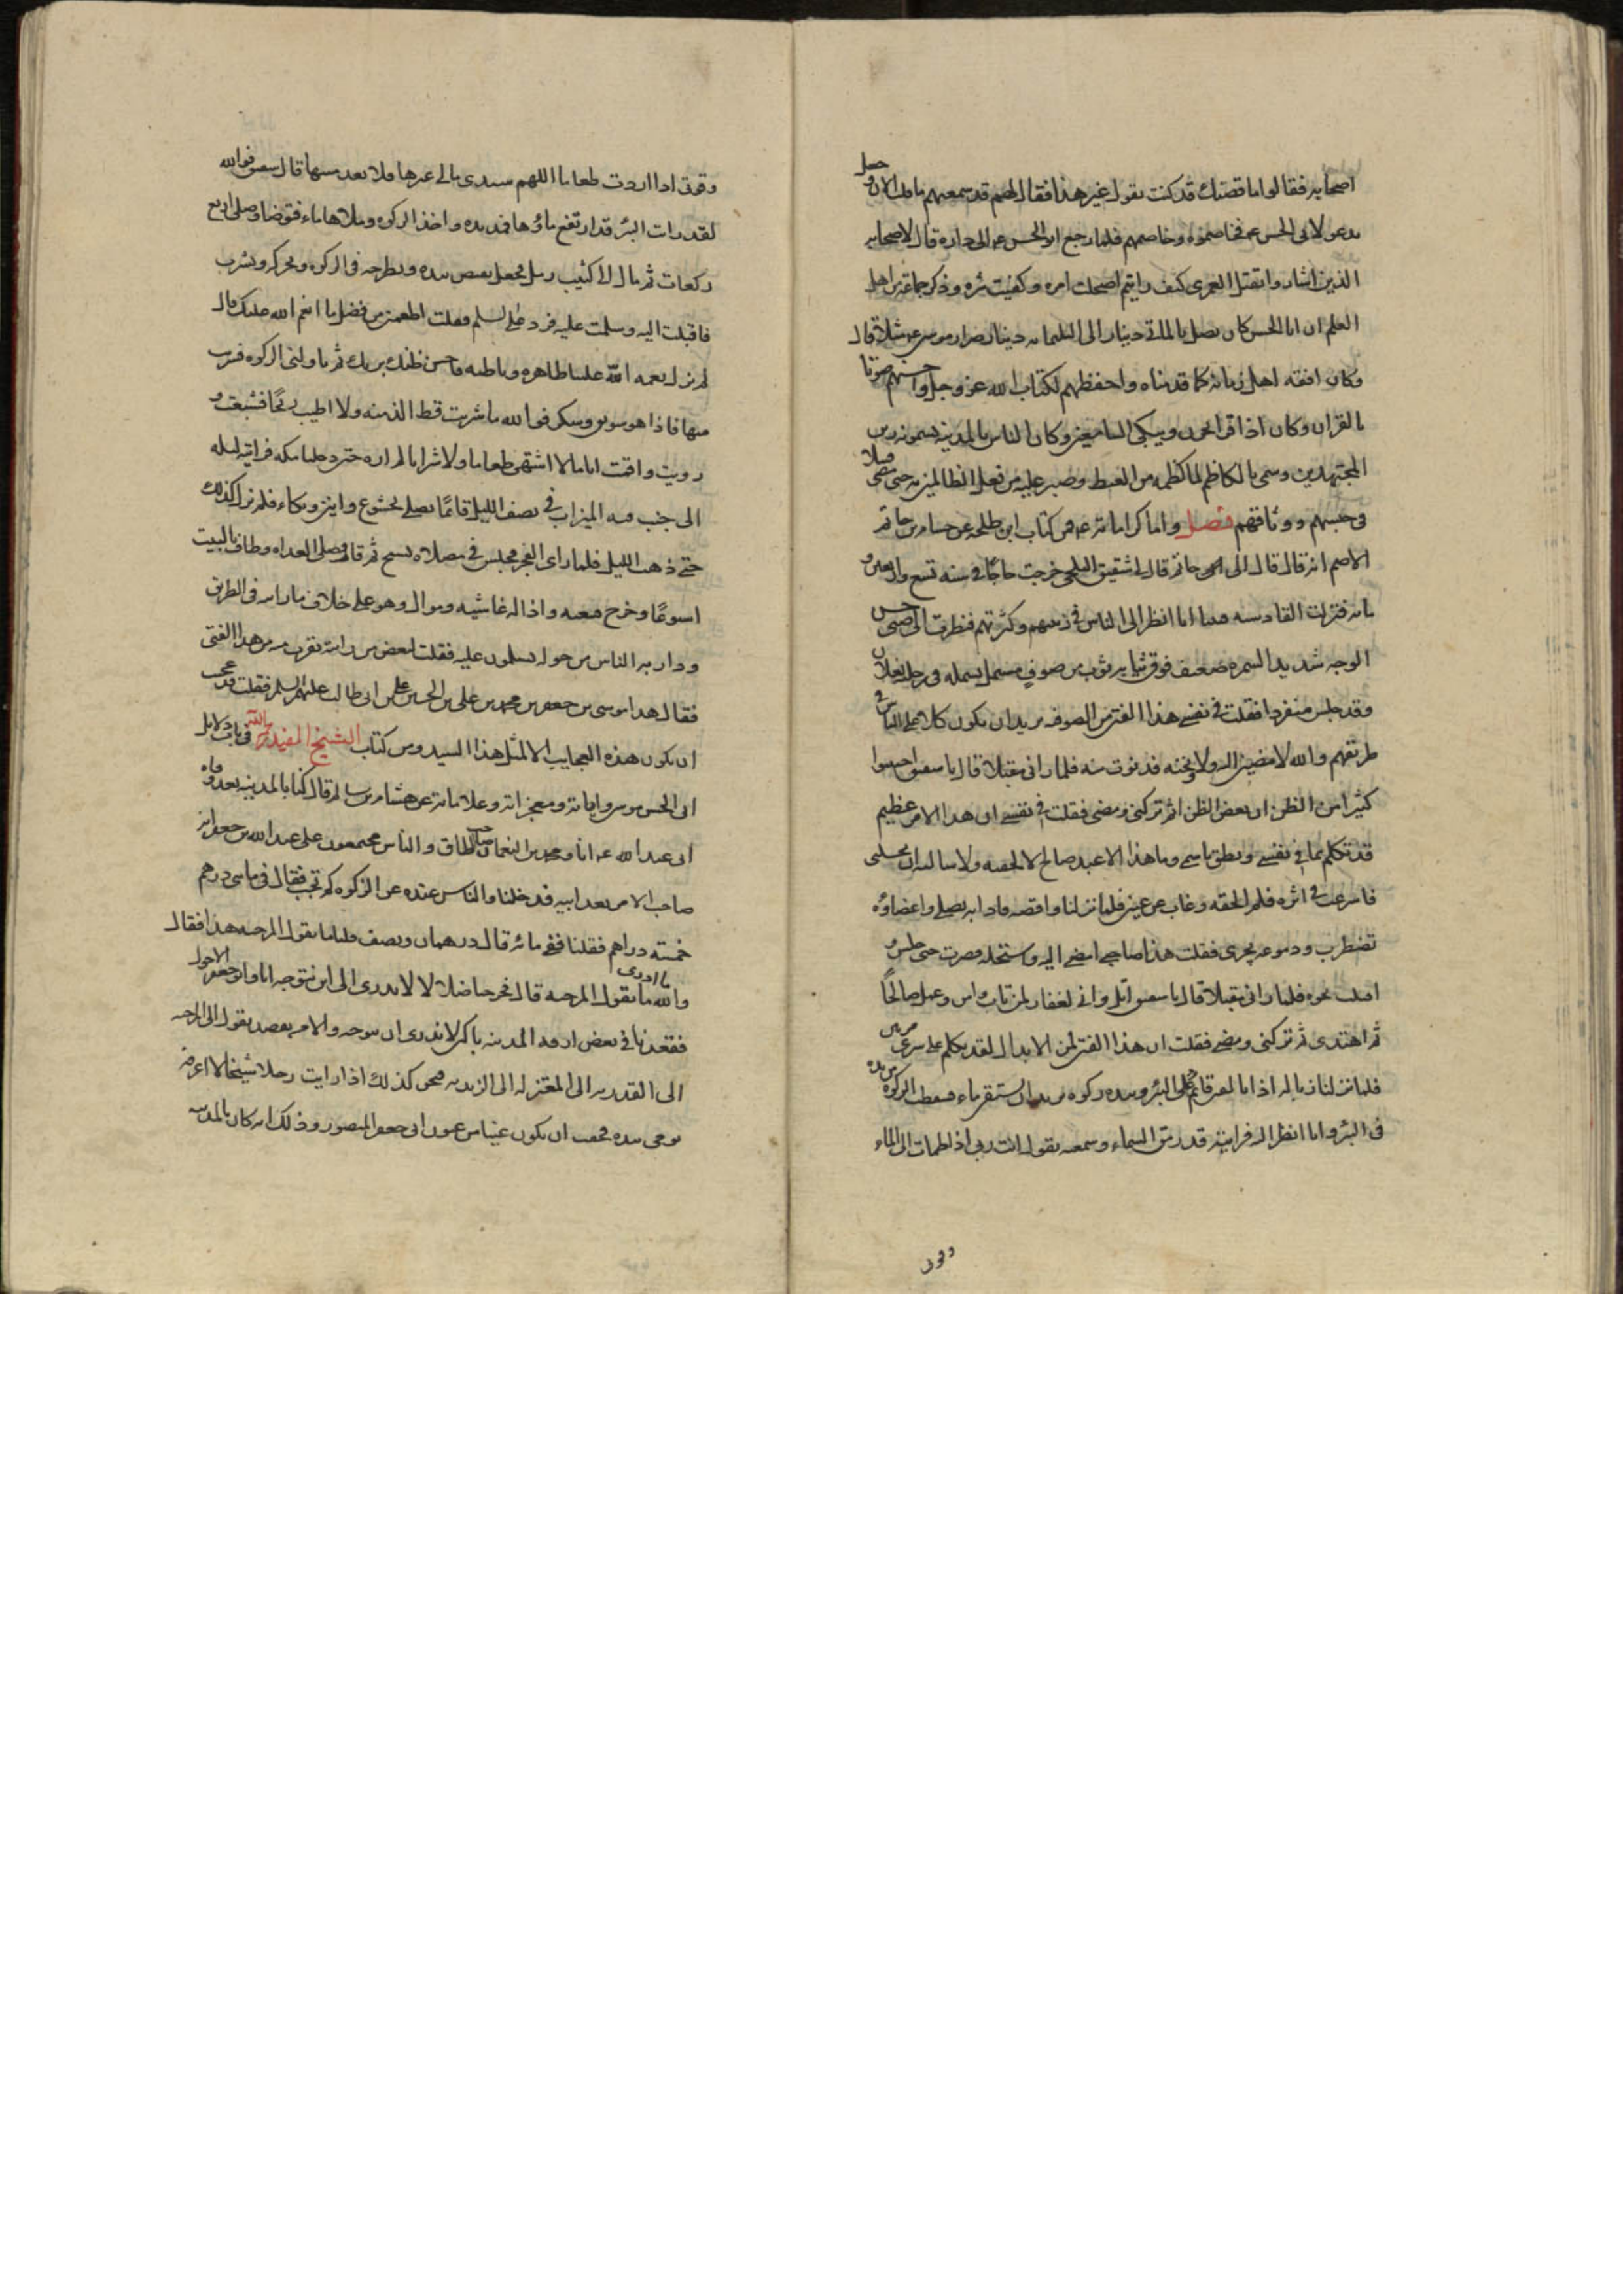 اصحابه فقالوا ما قصتك قد كنت تقول غير هذا فقال لهم قد سمعتهم ما قلت الان وجعل
يدعو لابي الحسن عم فخاصموه وخاصمهم فلما رجع ابو الحسن عم الى داره قال لاصحابه
الذين اشاروا بقتل العمرى كيف رايتم اصلحت امره وكفيت شره وذكر جماعة من اهل
العلم ان ابا الحسن كان يصل بالمائتي دينار الى الثلثمائة دينار وصرار موسى عم مثلا قال
وكان افقه اهل زمانه كما قدمناه واحفظهم لكتاب الله عز وجل واحسنهم صوتا
بالقران وكان اذا قرا يحزن ويبكي السامعين وكان الناس بالمدينة يسمونه زين
المجتهدين وسمى بالكاظم لما كظمه من الغيظ وصبر عليه من فعل الظالمين به حتى مضى قتيلا
في حبسهم ووثاقهم فصل واما كراماته عم فمن كتاب ابن طلحة عن حسام بن حاتم
الاصم انه قال قال لى ابى حاتم قال لى شقيق البلخى خرجت حاجا في سنة تسع واربعين و
مائة فنزلت القادسية فبينا انا انظر الى الناس في زينتهم وكثرتهم فنظرت الى فتى حسن
الوجه شديد السمرة ضعيف فوق ثيابه ثوب من صوف مشتمل بشملة في رجليه نعلان
وقد جلس منفردا فقلت في نفسي هذا الفتى من الصوفية يريد ان يكون كلا على الناس في
طريقهم والله لامضين اليه ولاوبخنه فدنوت منه فلما راني مقبلا قال يا شقيق اجتنبوا
كثيرا من الظن ان بعض الظن اثم تركني ومضى فقلت في نفسي ان هذا الامر عظيم
قد تكلم بما في نفسي ونطق باسمي وما هذا الا عبد صالح لالحقنه ولاسالنه ان يحللني
فاسرعت في اثره فلم الحقه وغاب عن عيني فلما نزلنا واقصة فاذا به يصلي واعضاؤه
تضطرب ودموعه تجرى فقلت هذا صاحبي امضى اليه واستحله فصبرت حتى جلس و
اقبلت نحوه فلما راني مقبلا قال يا شقيق اتل واني لغفار لمن تاب وامن وعمل صالحا
ثم اهتدى ثم تركني ومضى فقلت ان هذا الفتى لمن الابدال لقد تكلم على سرى مرتين
فلما نزلنا زبالة اذا بالفتى قائم على البئر وبيده ركوة يريد ان يستقي ماء فسقطت الركوة من يده
في البئر وانا انظر اليه فرايته قد رمق السماء وسمعته يقول انت ربي اذا ظمات الى الماء
وقوتى
وقوتى اذا اردت طعاما اللهم سيدى مالي غيرها فلا تعدمنيها قال شقيق فوالله
لقد رايت البئر قد ارتفع ماؤها فمد يده واخذ الركوة وملاها ماء فتوضا وصلى اربع
ركعات ثم مال الى كثيب رمل فجعل يقبض بيده ويطرحه في الركوة ويحركه ويشرب
فاقبلت اليه وسلمت عليه فرد على السلم فقلت اطعمني من فضل ما انعم الله عليك قال
لم تزل نعمة الله علينا ظاهرة وباطنة فاحسن ظنك بربك ثم ناولني الركوة فشربت
منها فاذا هو سويق وسكر فوالله ما شربت قط الذ منه ولا اطيب ريحا فشبعت و
رويت واقمت اياما لا اشتهى طعاما ولا شرابا ثم لم اره حتى دخلنا مكة فرايته ليلة
الى جنب قبة الميزاب في نصف الليل قائما يصلي بخشوع وانين وبكاء فلم يزل كذلك
حتى ذهب الليل فلما راى الفجر جلس في مصلاه يسبح ثم قام فصلى الغداة وطاف بالبيت
اسبوعا وخرج فتبعته واذا له غاشية وموال وهو على خلاف ما رايته في الطريق
ودار به الناس من حوله يسلمون عليه فقلت لبعض من رايته يقرب منه من هذا الفتى
فقال هذا موسى بن جعفر بن محمد بن على بن الحسين بن على بن ابى طالب عليهم السلم فقلت قد عجبت
ان يكون هذه العجايب الا لمثل هذا السيد ومن كتاب الشيخ المفيد رحمه الله في باب دلايل
ابى الحسن موسى واياته ومعجزاته وعلاماته عن هشام بن سالم قال كنا بالمدينة بعد وفاة
ابى عبد الله عم انا ومحمد بن النعمان صاحب الطاق والناس مجتمعون على عبد الله بن جعفر انه
صاحب الامر بعد ابيه فدخلنا والناس عنده عن الزكوة كم تجب فقال في مائتي درهم
خمسة دراهم فقلنا ففي مائة قال درهمان ونصف قلنا ما تقول المرجئة هذا فقال
والله ما ادرى ما تقول المرجئة قال فخرجنا ضلالا لا ندرى الى اين نتوجه انا وابو جعفر الاحول
فقعدنا في بعض ازقة المدينة باكين لا ندرى اين نتوجه والى من نقصد نقول الى المرجئة
الى القدرية الى المعتزلة الى الزيدية فنحن كذلك اذ رايت رجلا شيخا لا اعرفه
يومى بيده فخفت ان يكون عينا من عيون ابى جعفر المنصور وذلك انه كان بالمدينة